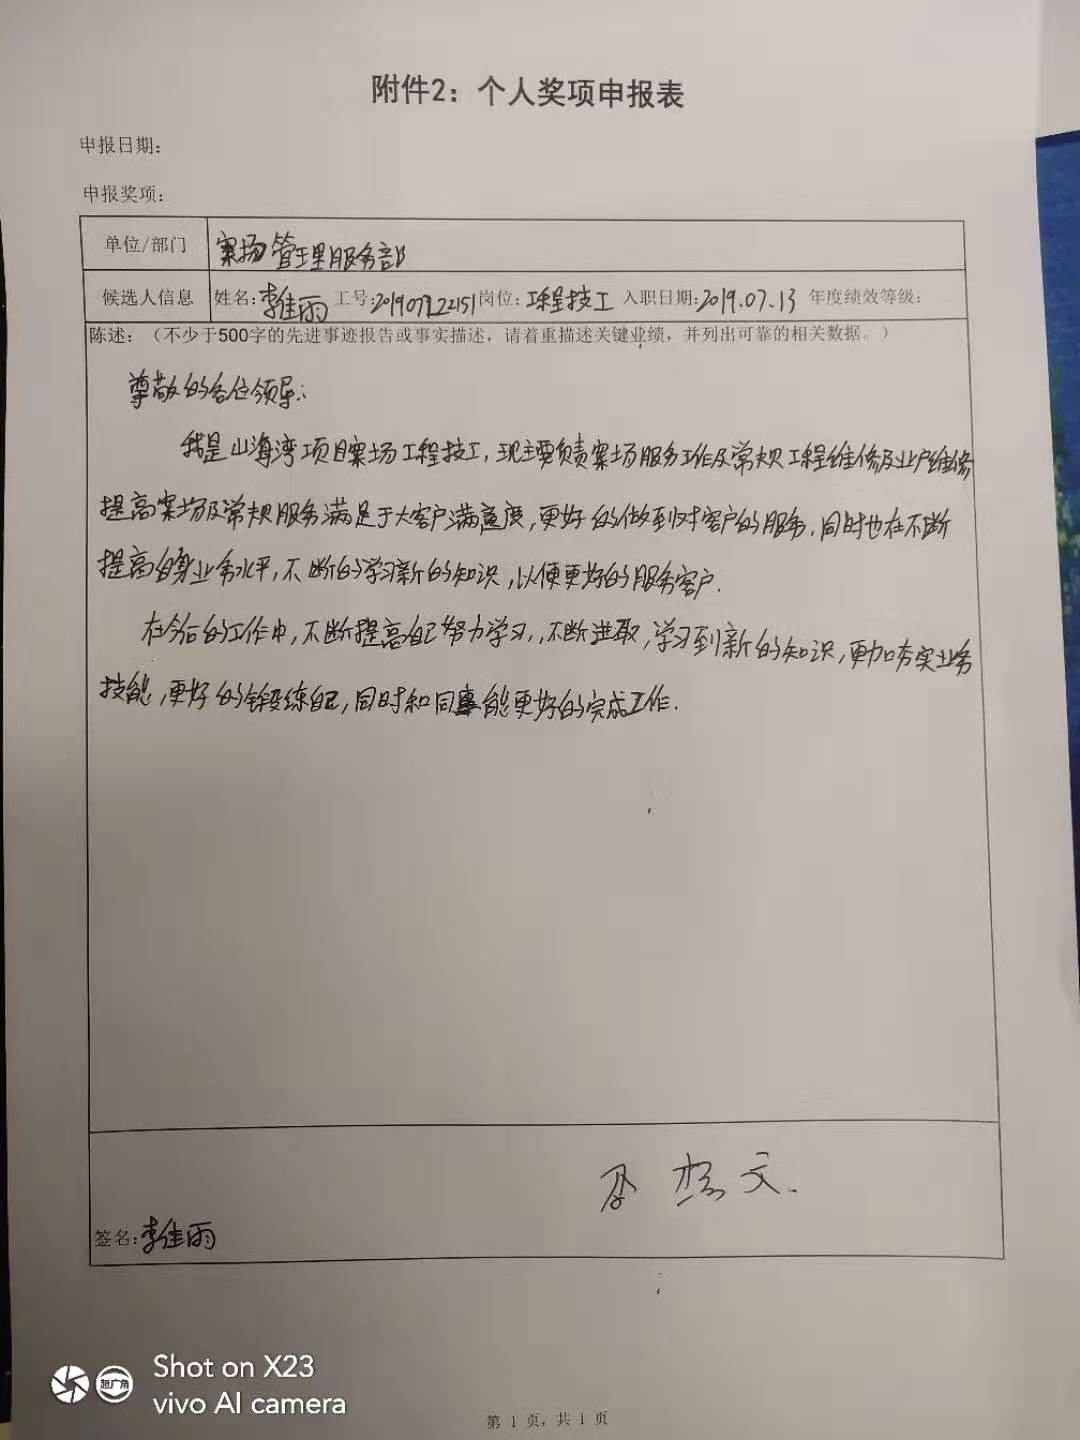 附件2：个人奖项申报表
申报日期：
申报奖项：
单位/部门 案场管理服务部
候选人信息 姓名：李佳雨 工号：20190722151 岗位：工程技工 入职日期：2019.07.13 年度绩效等级：
陈述：（不少于500字的先进事迹报告或事实描述，请着重描述关键业绩，并列出可靠的相关数据。）
尊敬的各位领导：
我是山海湾项目案场工程技工，现主要负责案场服务工作及常规工程维修及业户维修
提高案场及常规服务满足于大客户满意度，更好的做到对客户的服务，同时也在不断
提高自身业务水平，不断的学习新的知识，以便更好的服务客户.
在今后的工作中，不断提高自己努力学习，，不断进取，学习到新的知识，更加夯实业务
技能，更好的锻练自己，同时和同事能更好的完成工作.
文.
签名：李佳雨
Shot on X23
超广角
vivo AI camera
第 1 页，共 1 页